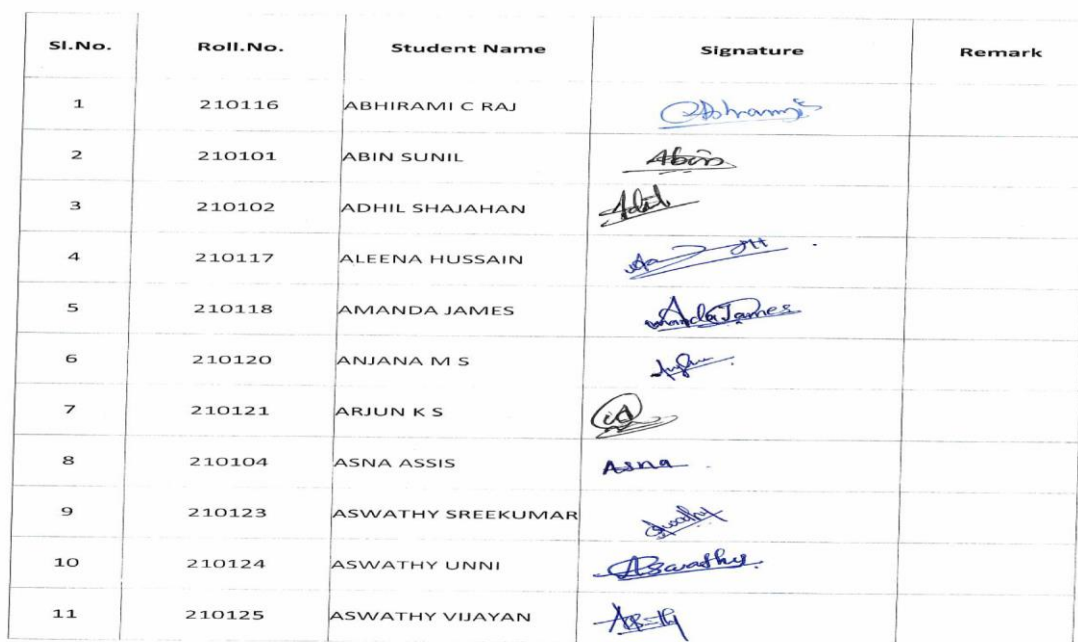 Sl.No. Roll.No. Student Name Signature Remark
1 210116 ABHIRAMI C RAJ
2 210101 ABIN SUNIL Abin
3 210102 ADHIL SHAJAHAN Adil
4 210117 ALEENA HUSSAIN
5 210118 AMANDA JAMES Amanda James
6 210120 ANJANA M S
7 210121 ARJUN K S
8 210104 ASNA ASSIS Asna
9 210123 ASWATHY SREEKUMAR
10 210124 ASWATHY UNNI Aswathy
11 210125 ASWATHY VIJAYAN